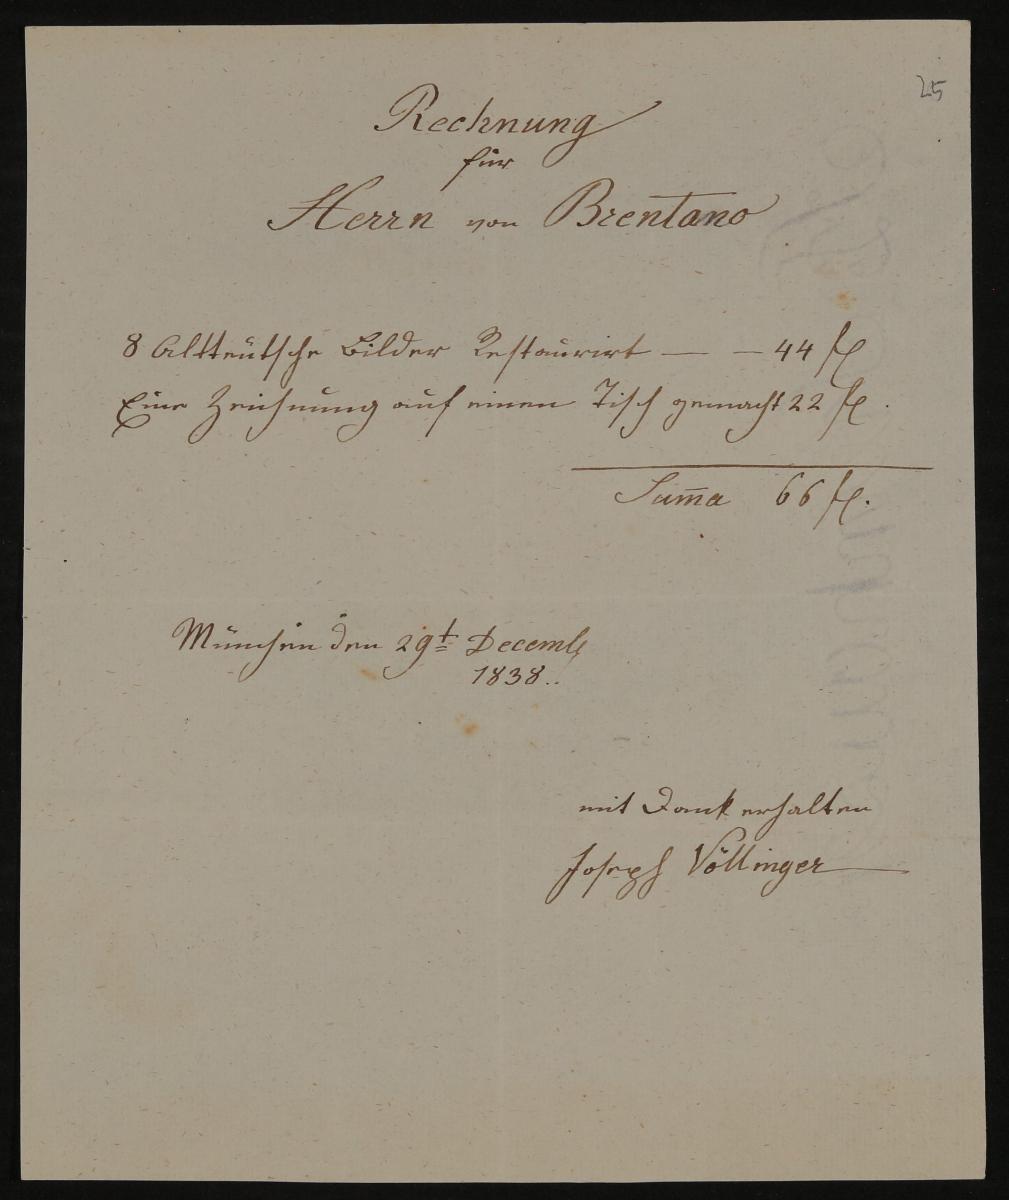 25
Rechnung
für
Herrn von Brentano
8 Altteütsche Bilder Restaurirt — — 44 fl
Eine Zeichnung auf einen Tisch gemacht 22 fl.
Sum̅a 66 fl.
München den 29t Decemb
1838..
mit Dank erhalten
Joseph Völlinger